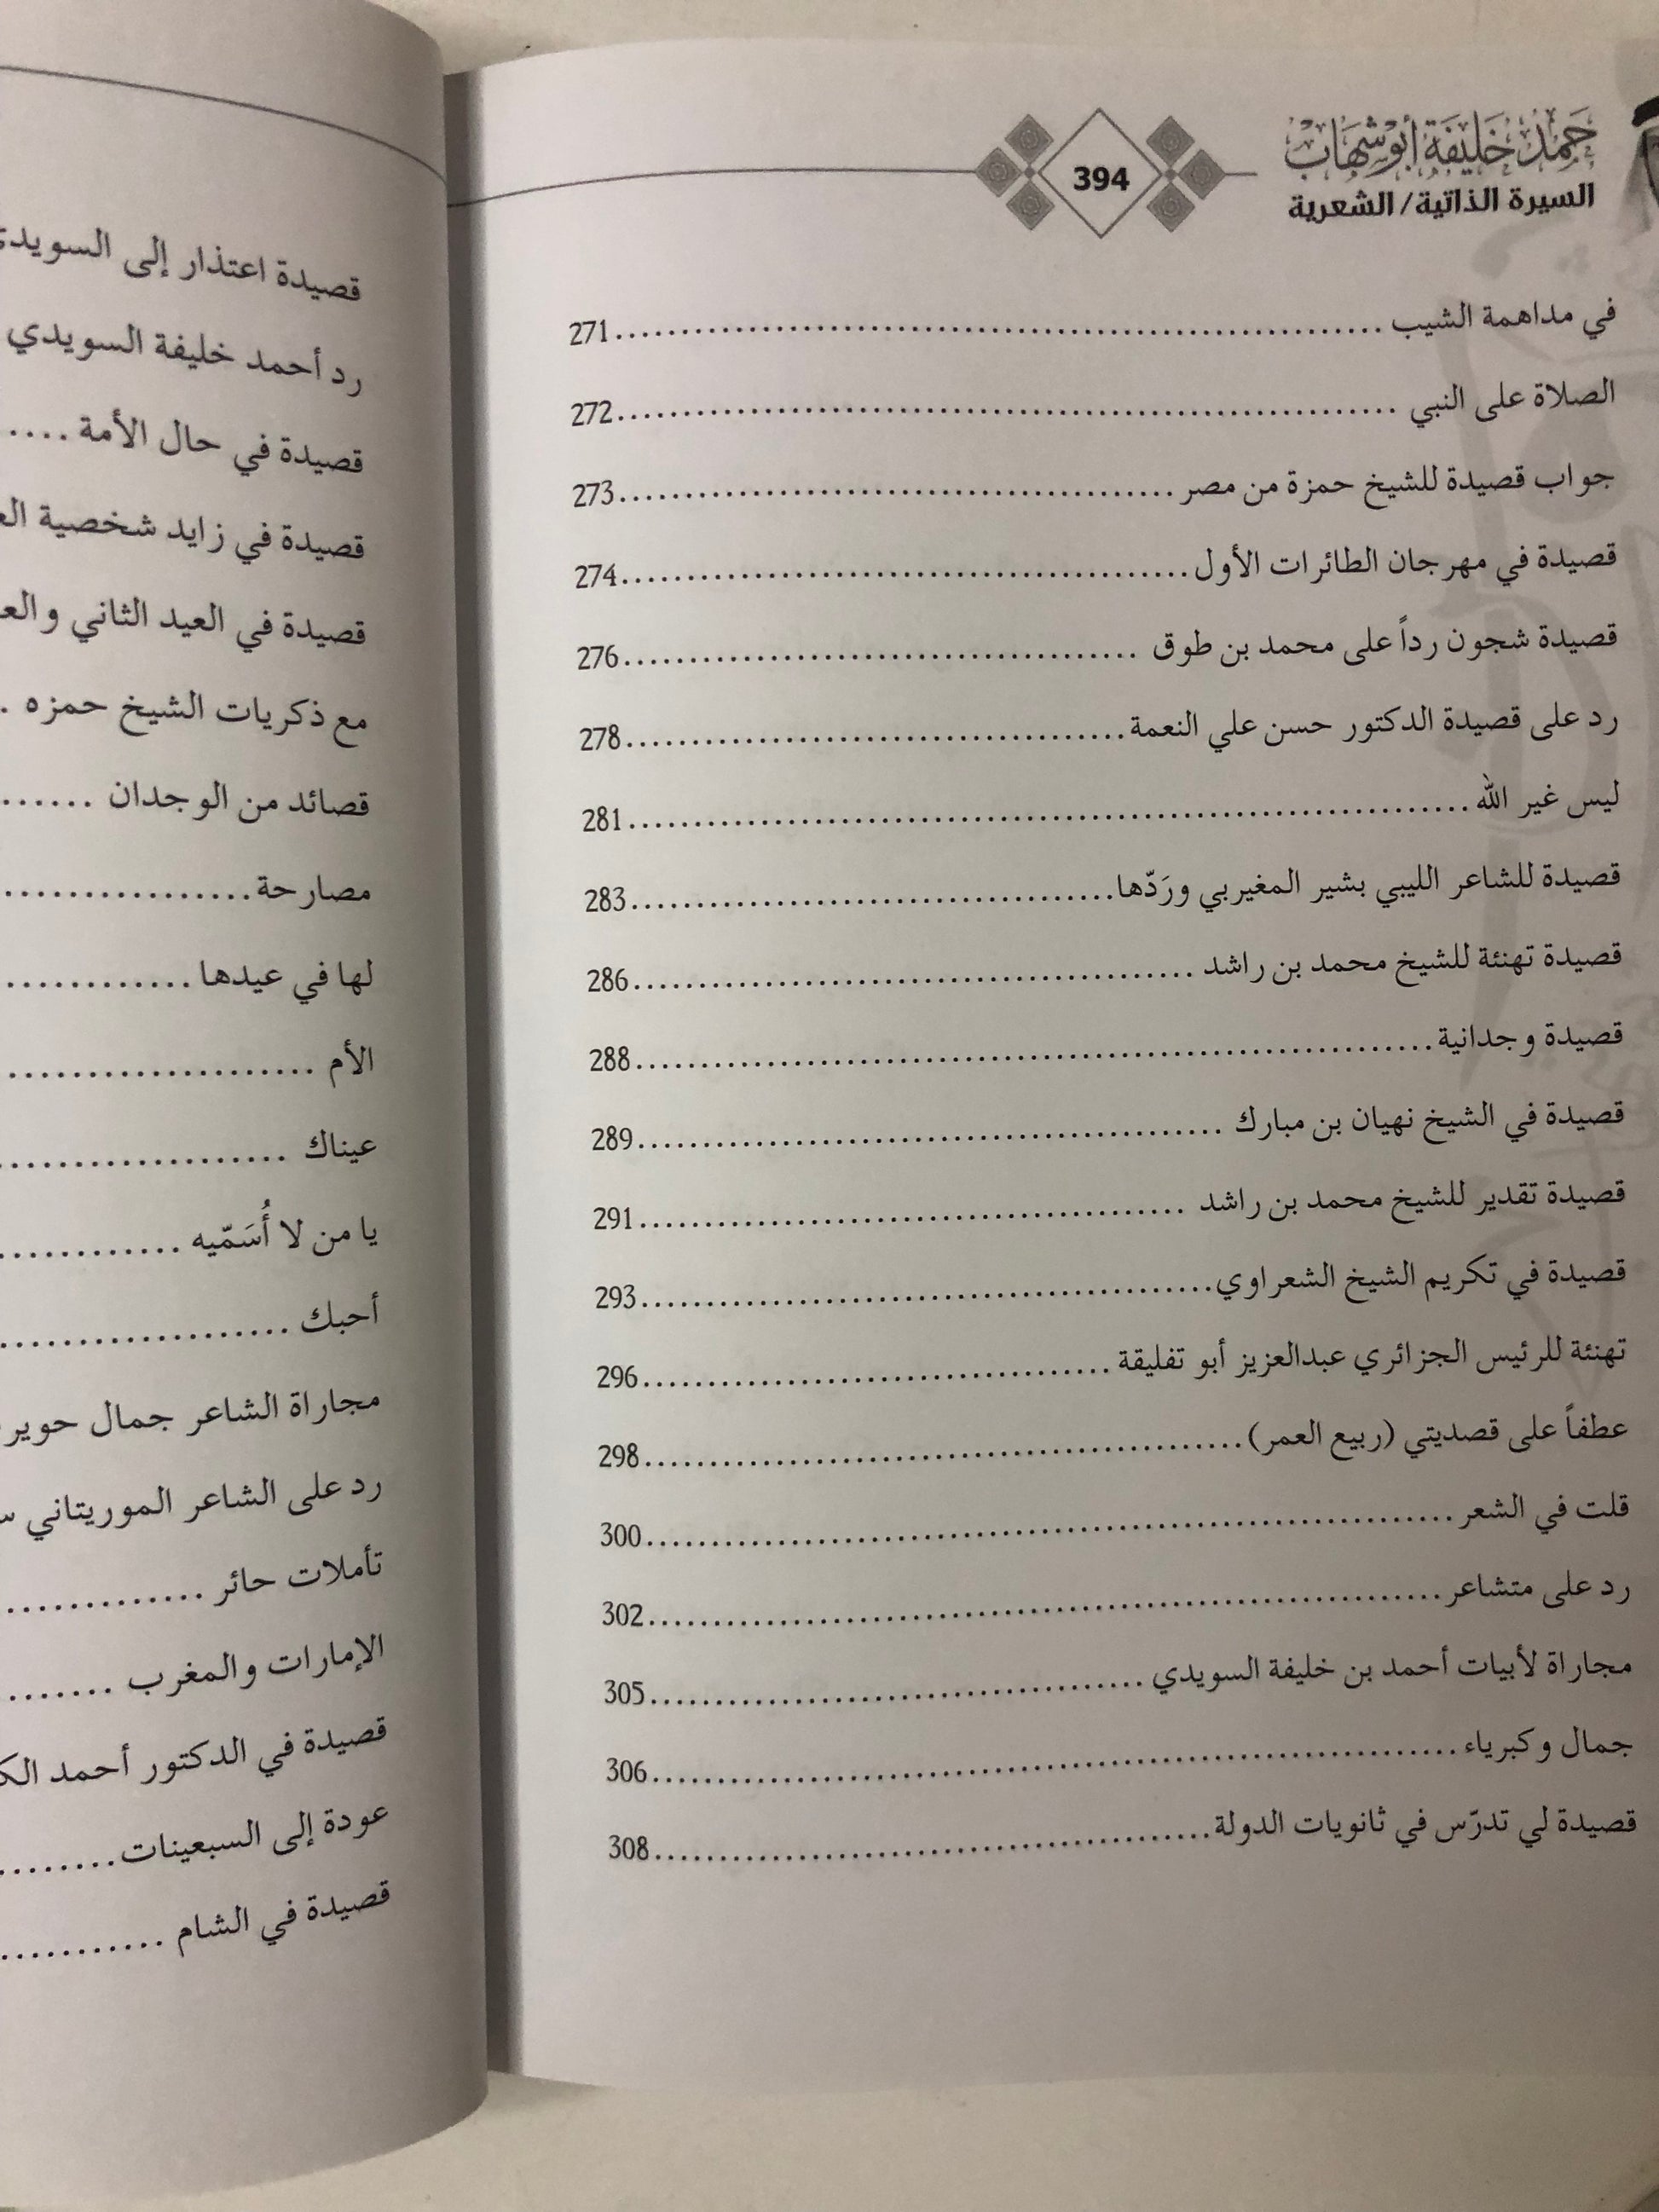 حمد خليفة أبوشهاب
السيرة الذاتية/الشعرية
394
في مداهمة الشيب ........ 271
الصلاة على النبي ........ 272
جواب قصيدة للشيخ حمزة من مصر ........ 273
قصيدة في مهرجان الطائرات الأول ........ 274
قصيدة شجون رداً على محمد بن طوق ........ 276
رد على قصيدة الدكتور حسن علي النعمة ........ 278
ليس غير الله ........ 281
قصيدة للشاعر الليبي بشير المغيربي ورَدّها ........ 283
قصيدة تهنئة للشيخ محمد بن راشد ........ 286
قصيدة وجدانية ........ 288
قصيدة في الشيخ نهيان بن مبارك ........ 289
قصيدة تقدير للشيخ محمد بن راشد ........ 291
قصيدة في تكريم الشيخ الشعراوي ........ 293
تهنئة للرئيس الجزائري عبدالعزيز أبو تفليقة ........ 296
عطفاً على قصديتي (ربيع العمر) ........ 298
قلت في الشعر ........ 300
رد على متشاعر ........ 302
مجاراة لأبيات أحمد بن خليفة السويدي ........ 305
جمال وكبرياء ........ 306
قصيدة لي تدرّس في ثانويات الدولة ........ 308
قصيدة اعتذار إلى
رد أحمد خليفة السويدي
قصيدة في حال الأمة ....
قصيدة في زايد شخصية
قصيدة في العيد الثاني
مع ذكريات الشيخ حمزه .
قصائد من الوجدان ......
مصارحة ........
لها في عيدها ........
الأم ........
عيناك ........
يا من لا أُسَمّيه ........
أحبك ........
مجاراة الشاعر جمال
رد على الشاعر الموريتاني
تأملات حائر ........
الإمارات والمغرب .......
قصيدة في الدكتور أحمد
عودة إلى السبعينات ........
قصيدة في الشام ........